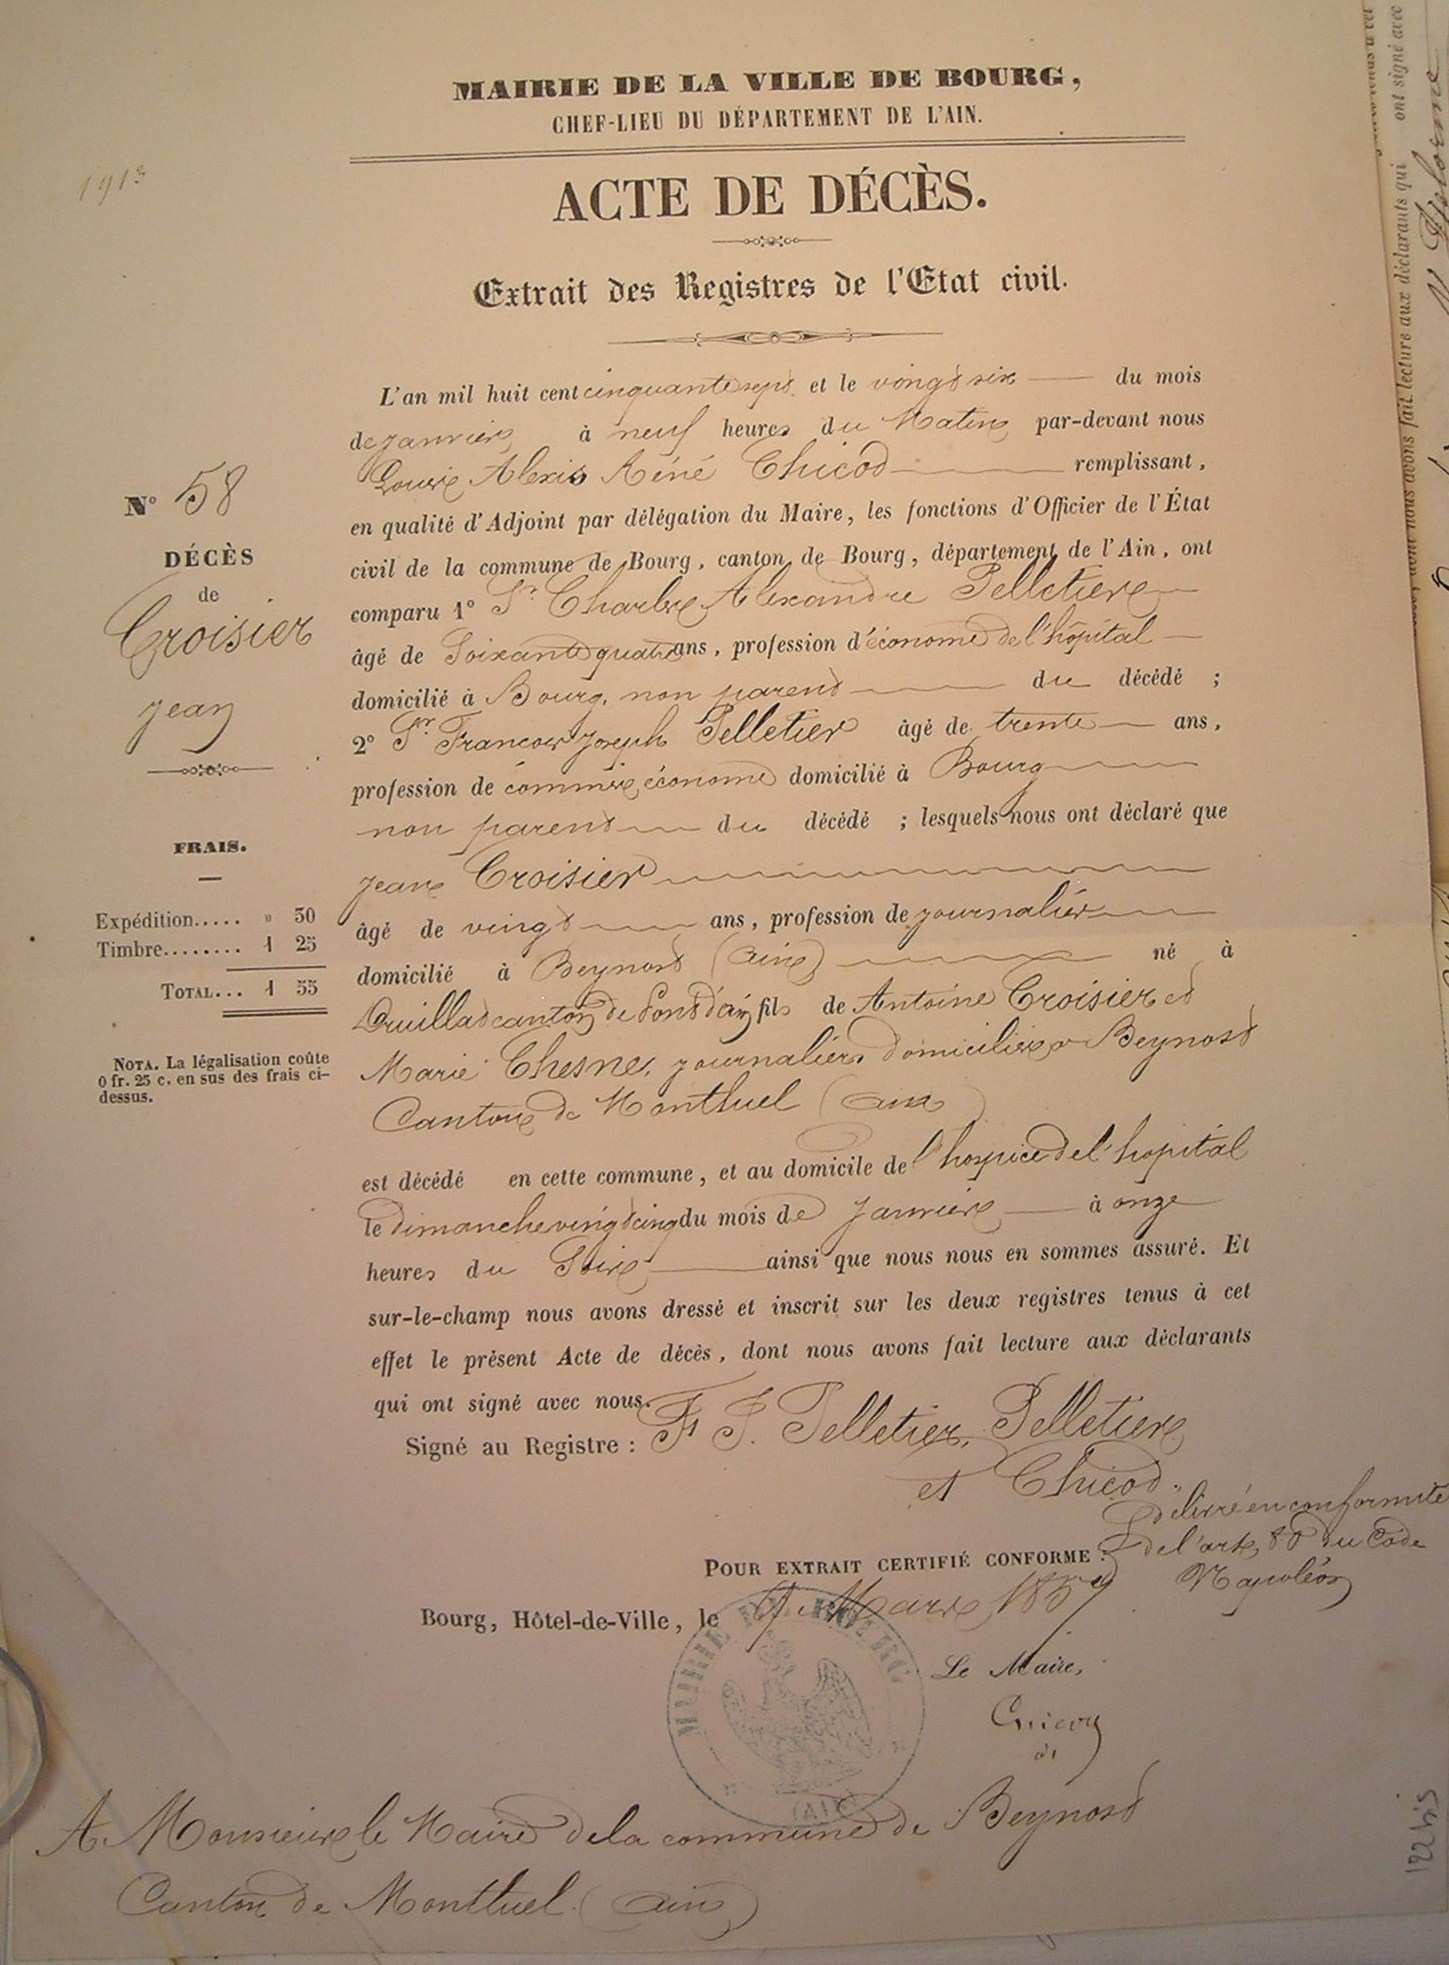 MAIRIE DE LA VILLE DE BOURG,
CHEF-LIEU DU DÉPARTEMENT DE L'AIN.
1913
ACTE DE DÉCÈS.
Extrait des Registres de l'Etat civil.
L'an mil huit cent cinquante sept et le vingt six du mois
de janvier à neuf heures du Matin par-devant nous
Louis Alexis Réné Chicod remplissant,
en qualité d'Adjoint par délégation du Maire, les fonctions d'Officier de l'État
civil de la commune de Bourg, canton de Bourg, département de l'Ain, ont
comparu 1° Sr. Charles Alexandre Pelletier
âgé de Soixante quatre ans, profession d'économe de l'hôpital
domicilié à Bourg, non parent du décédé ;
2° Sr. Francois Joseph Pelletier âgé de trente ans,
profession de commis économe domicilié à Bourg
non parent du décédé ; lesquels nous ont déclaré que
Jean Croisier
âgé de vingt ans, profession de journalier
domicilié à Beynost (Ain) né à
Druillat canton de Pont d'ain fils de Antoine Croisier et
Marie Chesne, journaliers domiciliés a Beynost
Canton de Montluel (ain)
est décédé en cette commune, et au domicile de l'hospice de l'hopital
le dimanche vingt cinq du mois de Janvier à onze
heures du Soir ainsi que nous nous en sommes assuré. Et
sur-le-champ nous avons dressé et inscrit sur les deux registres tenus à cet
effet le présent Acte de décès, dont nous avons fait lecture aux déclarants
qui ont signé avec nous.
Signé au Registre : Fs J. Pelletier, Pelletier
et Chicod.
N° 58
DÉCÈS
de
Croisier
Jean
FRAIS.
Expédition..... » 30
Timbre........ 1 25
TOTAL... 1 55
NOTA. La légalisation coûte
0 fr. 25 c. en sus des frais ci-
dessus.
délivré en conformité
de l'art. 80 du Code
Napoléon
POUR EXTRAIT CERTIFIÉ CONFORME :
Bourg, Hôtel-de-Ville, le 9 Mars 1857
MAIRIE DE BOURG
(AIN)
Le Maire,
Chicod
A Monsieur le Maire de la commune de Beynost
Canton de Montluel (Ain)
122 bis
ont signé avec
lecture aux déclarants qui
dont nous avons fait
Delorme